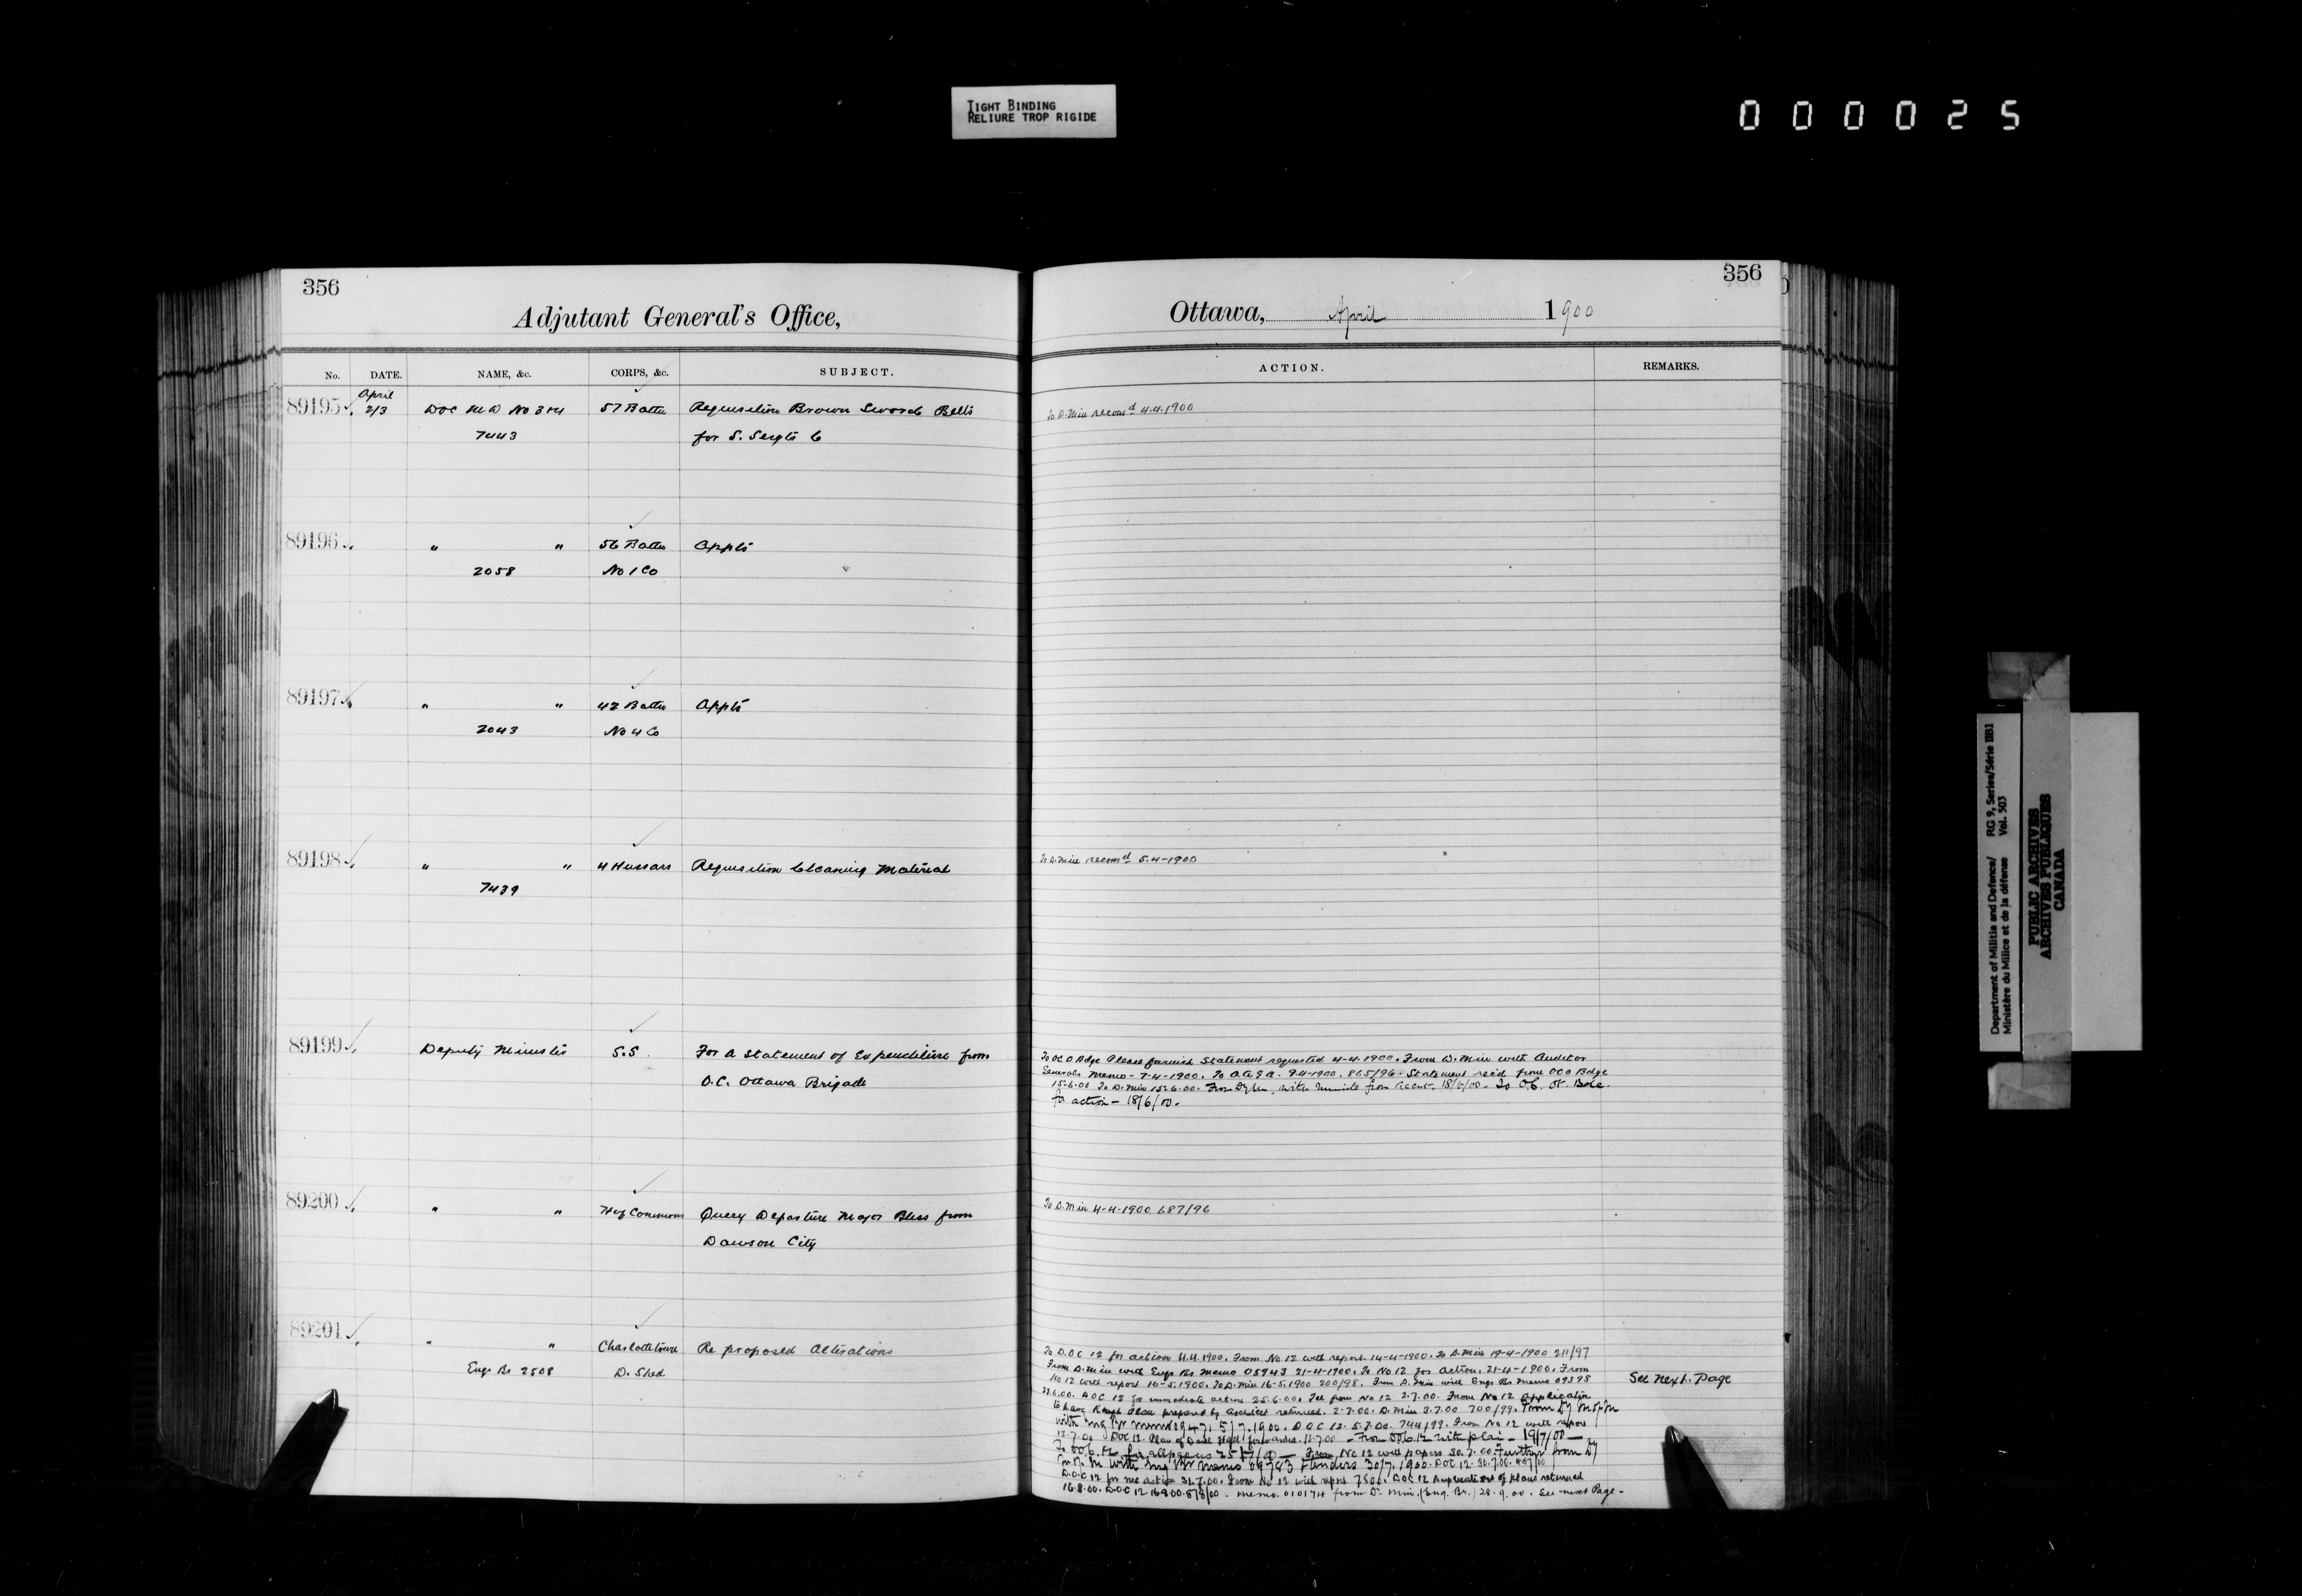 TIGHT BINDING
RELIURE TROP RIGIDE
000025
356
Adjutant General's Office,
No. DATE. NAME, &c. CORPS, &c. SUBJECT.
April
89195 2/3 DOC M D No 3 & 4 57 Battn Requisition Brown Sword Belts
7443 for S. Sergts 6
89196 " " 56 Battn Appts
2058 No 1 Co
89197 " " 42 Battn Appts
2043 No 4 Co
89198 " " 4 Hussars Requisition Cleaning Material
7439
89199 Deputy Minister S.S. For a statement of Expenditure from
O.C. Ottawa Brigade
89200 " " H of Commons Query Departure Major Bliss from
Dawson City
89201 " " Charlottetown Re proposed Alterations
Engr Br 2508 D. Shed
356
Ottawa, April 1900
ACTION. REMARKS.
To D. Min recomd 4.4.1900
To D. Min recomd 5.4-1900
To OC O Bdge Please furnish Statement requested 4-4-1900. From D. Min with Auditor
Generals Memo - 7-4-1900. To 9-4-1900. 865/96. Statement rec'd from OCO Bdge
15-6-00 To D. Min 15-6-00. from 18/6/00 - To O.C. Ot. Bde.
for action - 18/6/00.
To D. Min 4-4-1900 687/96
To D.O.C 12 for action 4.4.1900. From No 12 with report. 14-4-1900. To D. Min 19-4-1900 211/97
From D. Min with Engr Brs Memo 05943 21-4-1900. To No 12 for action. 21-4-1900. From
No 12 with report 10-5.1900. To D. Min 16-5.1900 200/98. From D. Min with Engr Brs Memo 09398
See next. Page
22.6.00. D.O.C 12 for immediate action 25.6.00. Tel from No 12 2.7.00. From No 12 Application
to have Rough plan prepared by Architect returned. 2-7-00. D. Min 3.7.00 700/99. From
with 5/7.1900. D O C 12. 5.7.00. 744/99. From No 12 with report
12.7.00 DOC 12. Plan of forwarded. 12.7.00 - From DOC 12 with plan - 19/7/00 -
To DOC 12 - From No 12 with papers 30.7.00. Further from Dy
with Memo 09783 30/7.1900. DOC 12. 30.7.00.
D.O.C 12 for nec action 31.7.00. From No 12 with report DOC 12 of plans returned
16.8.00. D.O.C 12 - memo. 010174 from D. Min. (Eng. Br.) 28.9.00. See next Page -
Department of Militia and Defence/ RG 9, Series/Série IIB1
Ministère du Milice et de la défense Vol. 503
PUBLIC ARCHIVES
ARCHIVES PUBLIQUES
CANADA